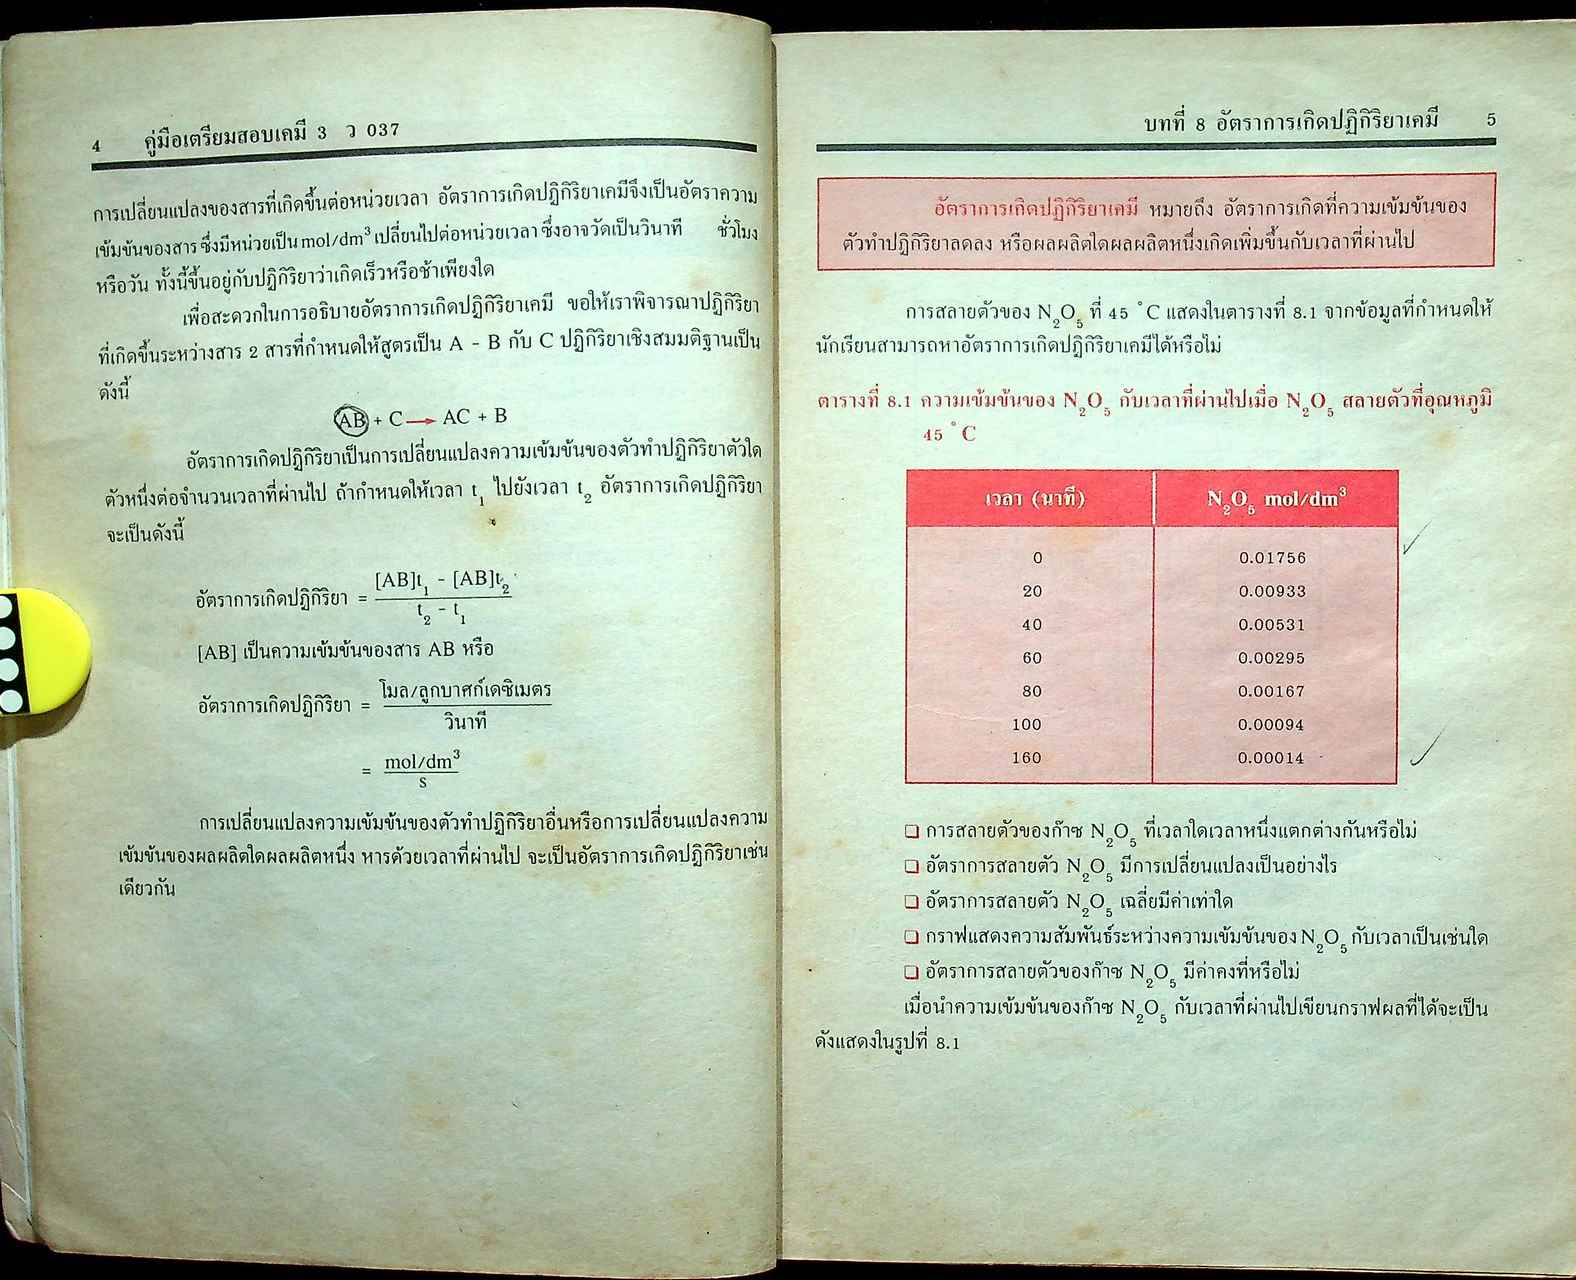 4 คู่มือเตรียมสอบเคมี 3 ว 037
การเปลี่ยนแปลงของสารที่เกิดขึ้นต่อหน่วยเวลา อัตราการเกิดปฏิกิริยาเคมีจึงเป็นอัตราความ
เข้มข้นของสาร ซึ่งมีหน่วยเป็น mol/dm³ เปลี่ยนไปต่อหน่วยเวลา ซึ่งอาจวัดเป็นวินาที ชั่วโมง
หรือวัน ทั้งนี้ขึ้นอยู่กับปฏิกิริยาว่าเกิดเร็วหรือช้าเพียงใด
เพื่อสะดวกในการอธิบายอัตราการเกิดปฏิกิริยาเคมี ขอให้เราพิจารณาปฏิกิริยา
ที่เกิดขึ้นระหว่างสาร 2 สารที่กำหนดให้สูตรเป็น A - B กับ C ปฏิกิริยาเชิงสมมติฐานเป็น
ดังนี้
AB + C → AC + B
อัตราการเกิดปฏิกิริยาเป็นการเปลี่ยนแปลงความเข้มข้นของตัวทำปฏิกิริยาตัวใด
ตัวหนึ่งต่อจำนวนเวลาที่ผ่านไป ถ้ากำหนดให้เวลา t₁ ไปยังเวลา t₂ อัตราการเกิดปฏิกิริยา
จะเป็นดังนี้
[AB]t₁ - [AB]t₂
อัตราการเกิดปฏิกิริยา =
t₂ - t₁
[AB] เป็นความเข้มข้นของสาร AB หรือ
โมล/ลูกบาศก์เดซิเมตร
อัตราการเกิดปฏิกิริยา =
วินาที
mol/dm³
=
s
การเปลี่ยนแปลงความเข้มข้นของตัวทำปฏิกิริยาอื่นหรือการเปลี่ยนแปลงความ
เข้มข้นของผลผลิตใดผลผลิตหนึ่ง หารด้วยเวลาที่ผ่านไป จะเป็นอัตราการเกิดปฏิกิริยาเช่น
เดียวกัน
บทที่ 8 อัตราการเกิดปฏิกิริยาเคมี 5
อัตราการเกิดปฏิกิริยาเคมี หมายถึง อัตราการเกิดที่ความเข้มข้นของ
ตัวทำปฏิกิริยาลดลง หรือผลผลิตใดผลผลิตหนึ่งเกิดเพิ่มขึ้นกับเวลาที่ผ่านไป
การสลายตัวของ N₂O₅ ที่ 45 °C แสดงในตารางที่ 8.1 จากข้อมูลที่กำหนดให้
นักเรียนสามารถหาอัตราการเกิดปฏิกิริยาเคมีได้หรือไม่
ตารางที่ 8.1 ความเข้มข้นของ N₂O₅ กับเวลาที่ผ่านไปเมื่อ N₂O₅ สลายตัวที่อุณหภูมิ
45 °C
เวลา (นาที) N₂O₅ mol/dm³
0 0.01756
20 0.00933
40 0.00531
60 0.00295
80 0.00167
100 0.00094
160 0.00014
❏ การสลายตัวของก๊าซ N₂O₅ ที่เวลาใดเวลาหนึ่งแตกต่างกันหรือไม่
❏ อัตราการสลายตัว N₂O₅ มีการเปลี่ยนแปลงเป็นอย่างไร
❏ อัตราการสลายตัว N₂O₅ เฉลี่ยมีค่าเท่าใด
❏ กราฟแสดงความสัมพันธ์ระหว่างความเข้มข้นของ N₂O₅ กับเวลาเป็นเช่นใด
❏ อัตราการสลายตัวของก๊าซ N₂O₅ มีค่าคงที่หรือไม่
เมื่อนำความเข้มข้นของก๊าซ N₂O₅ กับเวลาที่ผ่านไปเขียนกราฟผลที่ได้จะเป็น
ดังแสดงในรูปที่ 8.1